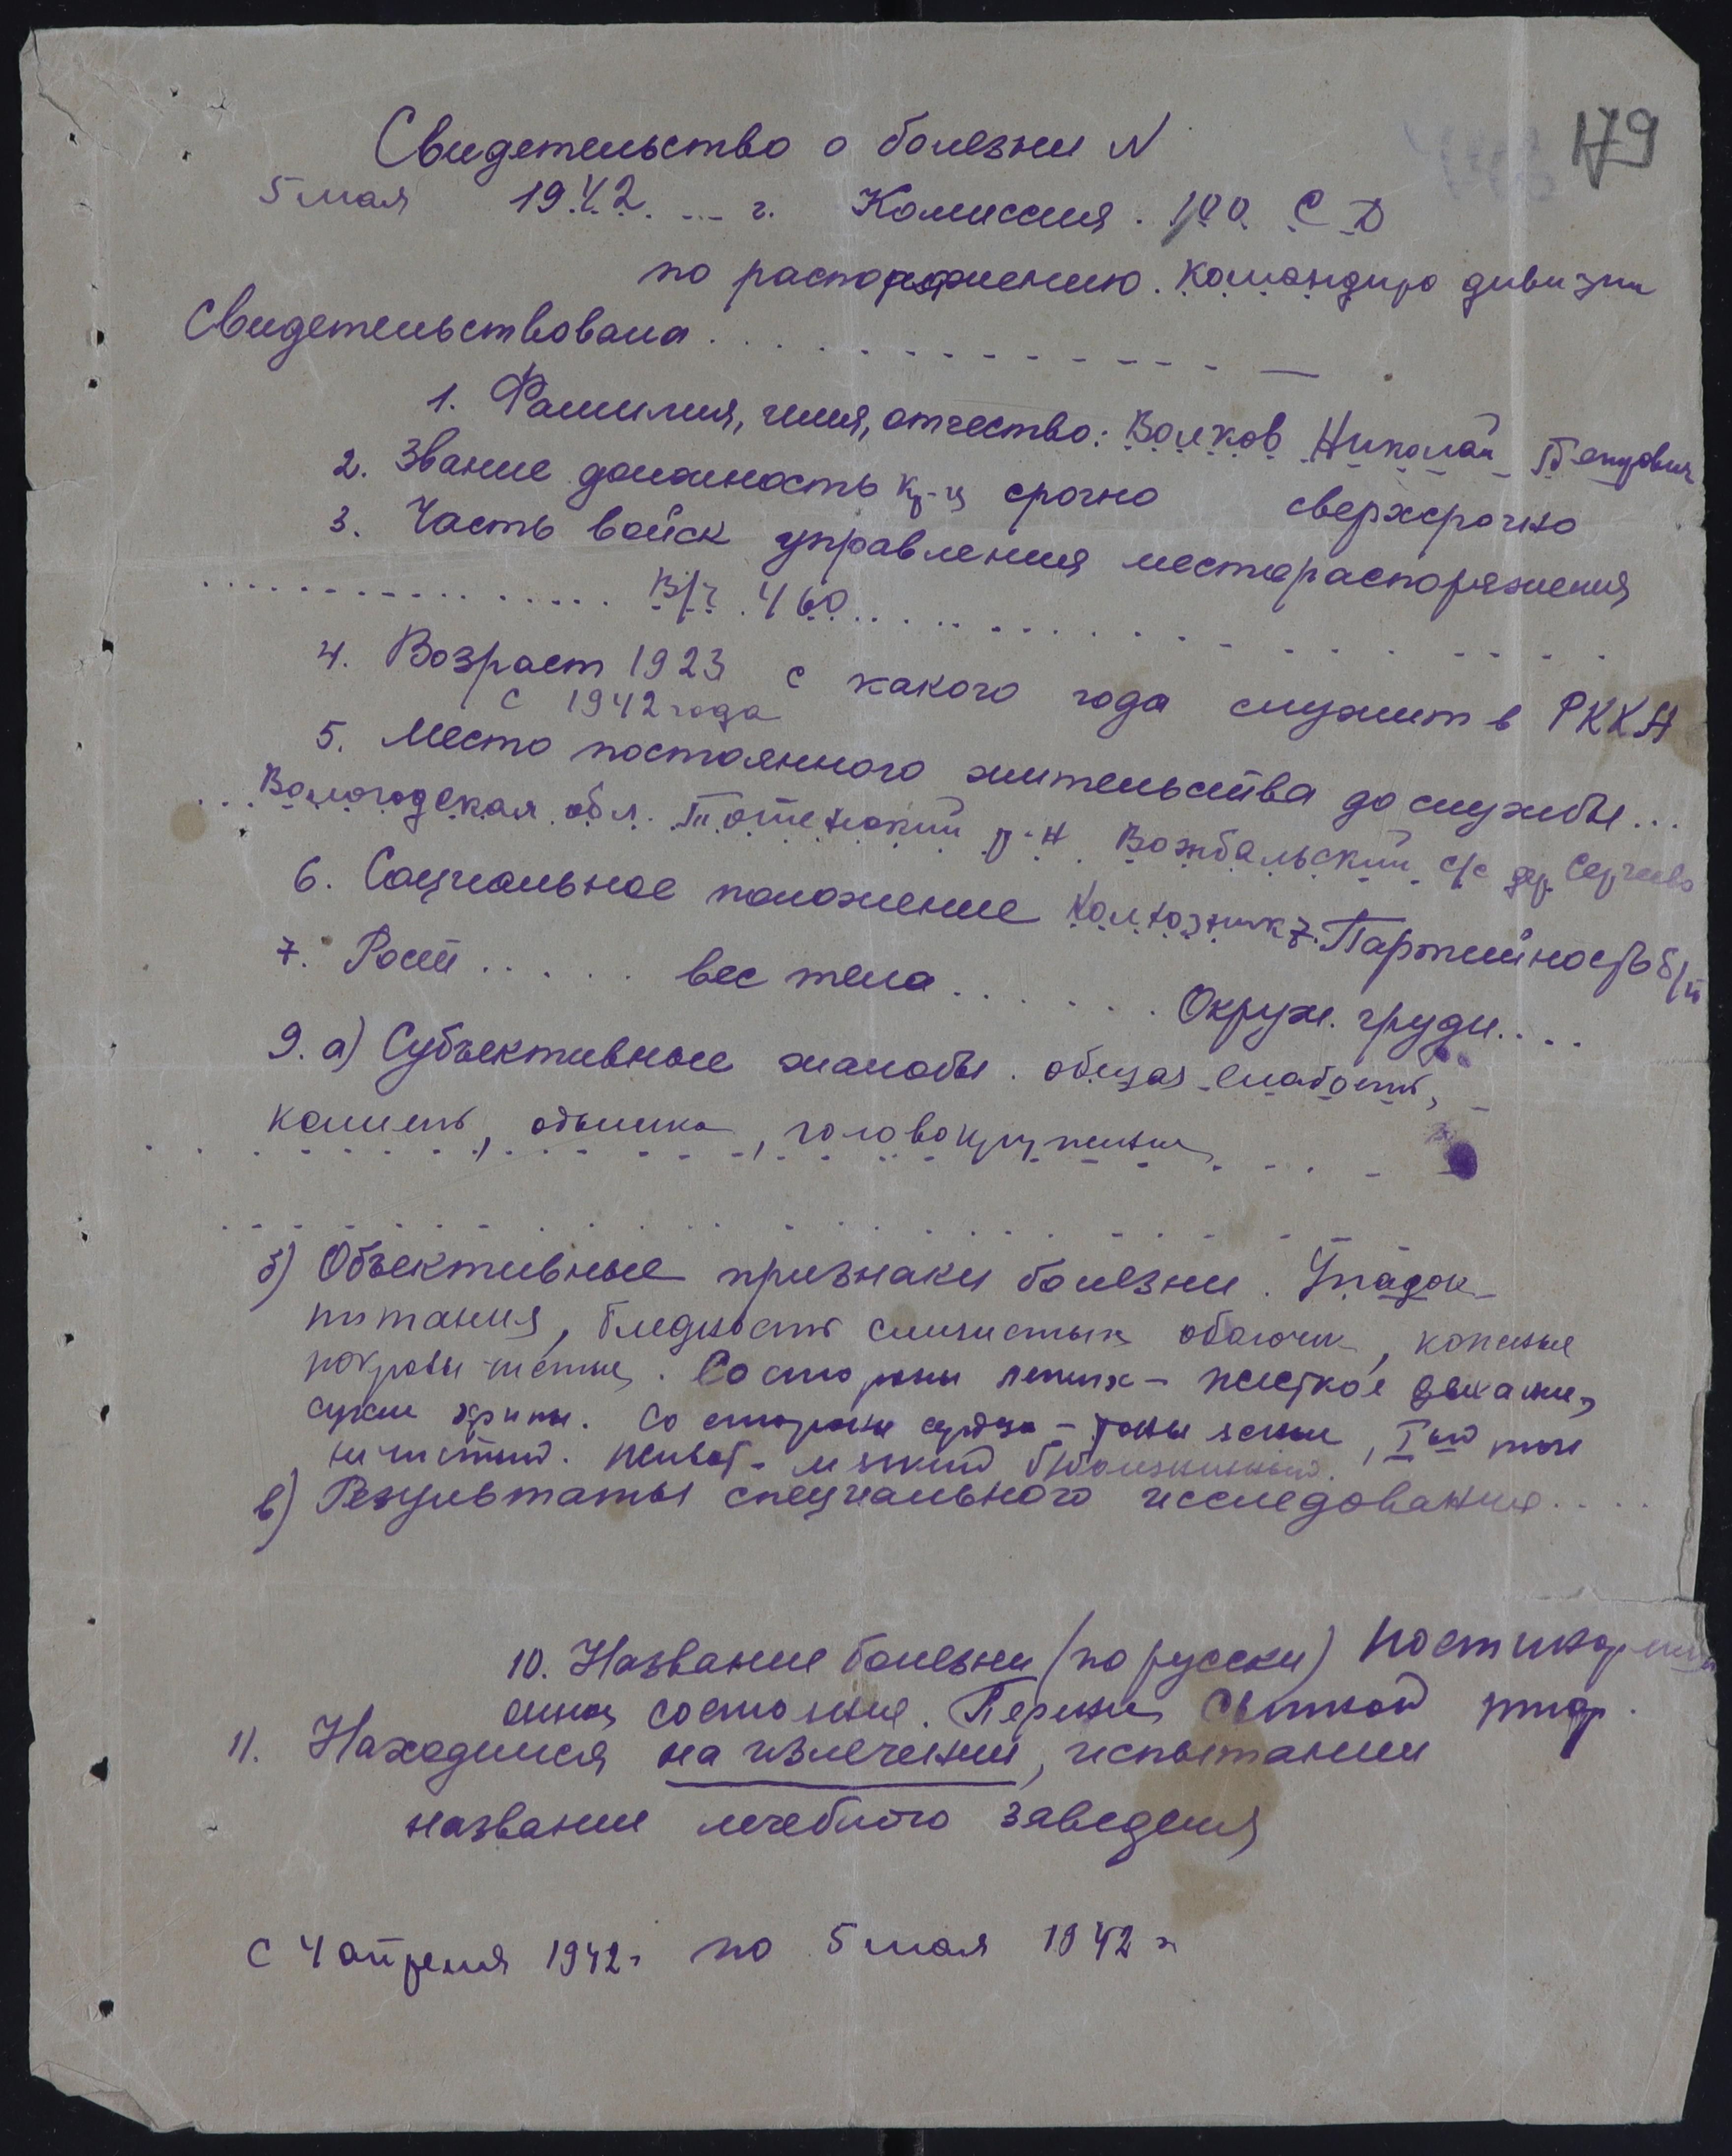 179
Свидетельство о болезни N
5 мая 1942 г. Комиссия 100 С Д
по распоряжению командира дивизии
Свидетельствована
1. Фамилия, имя, отчество: Волков Николай
2. Звание должность кр-ц срочно сверхсрочно
3. Часть войск управления месторасположения
В/ч 460
4. Возраст 1923 с какого года служит в РККА
с 1942 года
5. Место постоянного жительства до службы...
Вологодская обл. Тотемский р-н Вожбальский с/с дер. Сергеево
6. Социальное положение Колхозник 7. Партийность б/п
7. Рост..... вес тела...... Окруж. груди....
9. а) Субъективные жалобы. общая слабость,
кашель, одышка, головокружение
б) Объективные признаки болезни. Упадок
питания, бледность слизистых оболочек, кожные
покровы чистые. Со стороны легких - жесткое дыхание,
сухие хрипы. Со стороны сердца - тоны ясные, I ый тон
нечистый. Живот - мягкий безболезненный.
в) Результаты специального исследования....
10. Название болезни (по русски)
состояние. Перенес сыпной тиф.
11. Находился на излечении, испытании
название лечебного заведения
с 4 апреля 1942 г по 5 мая 1942 г